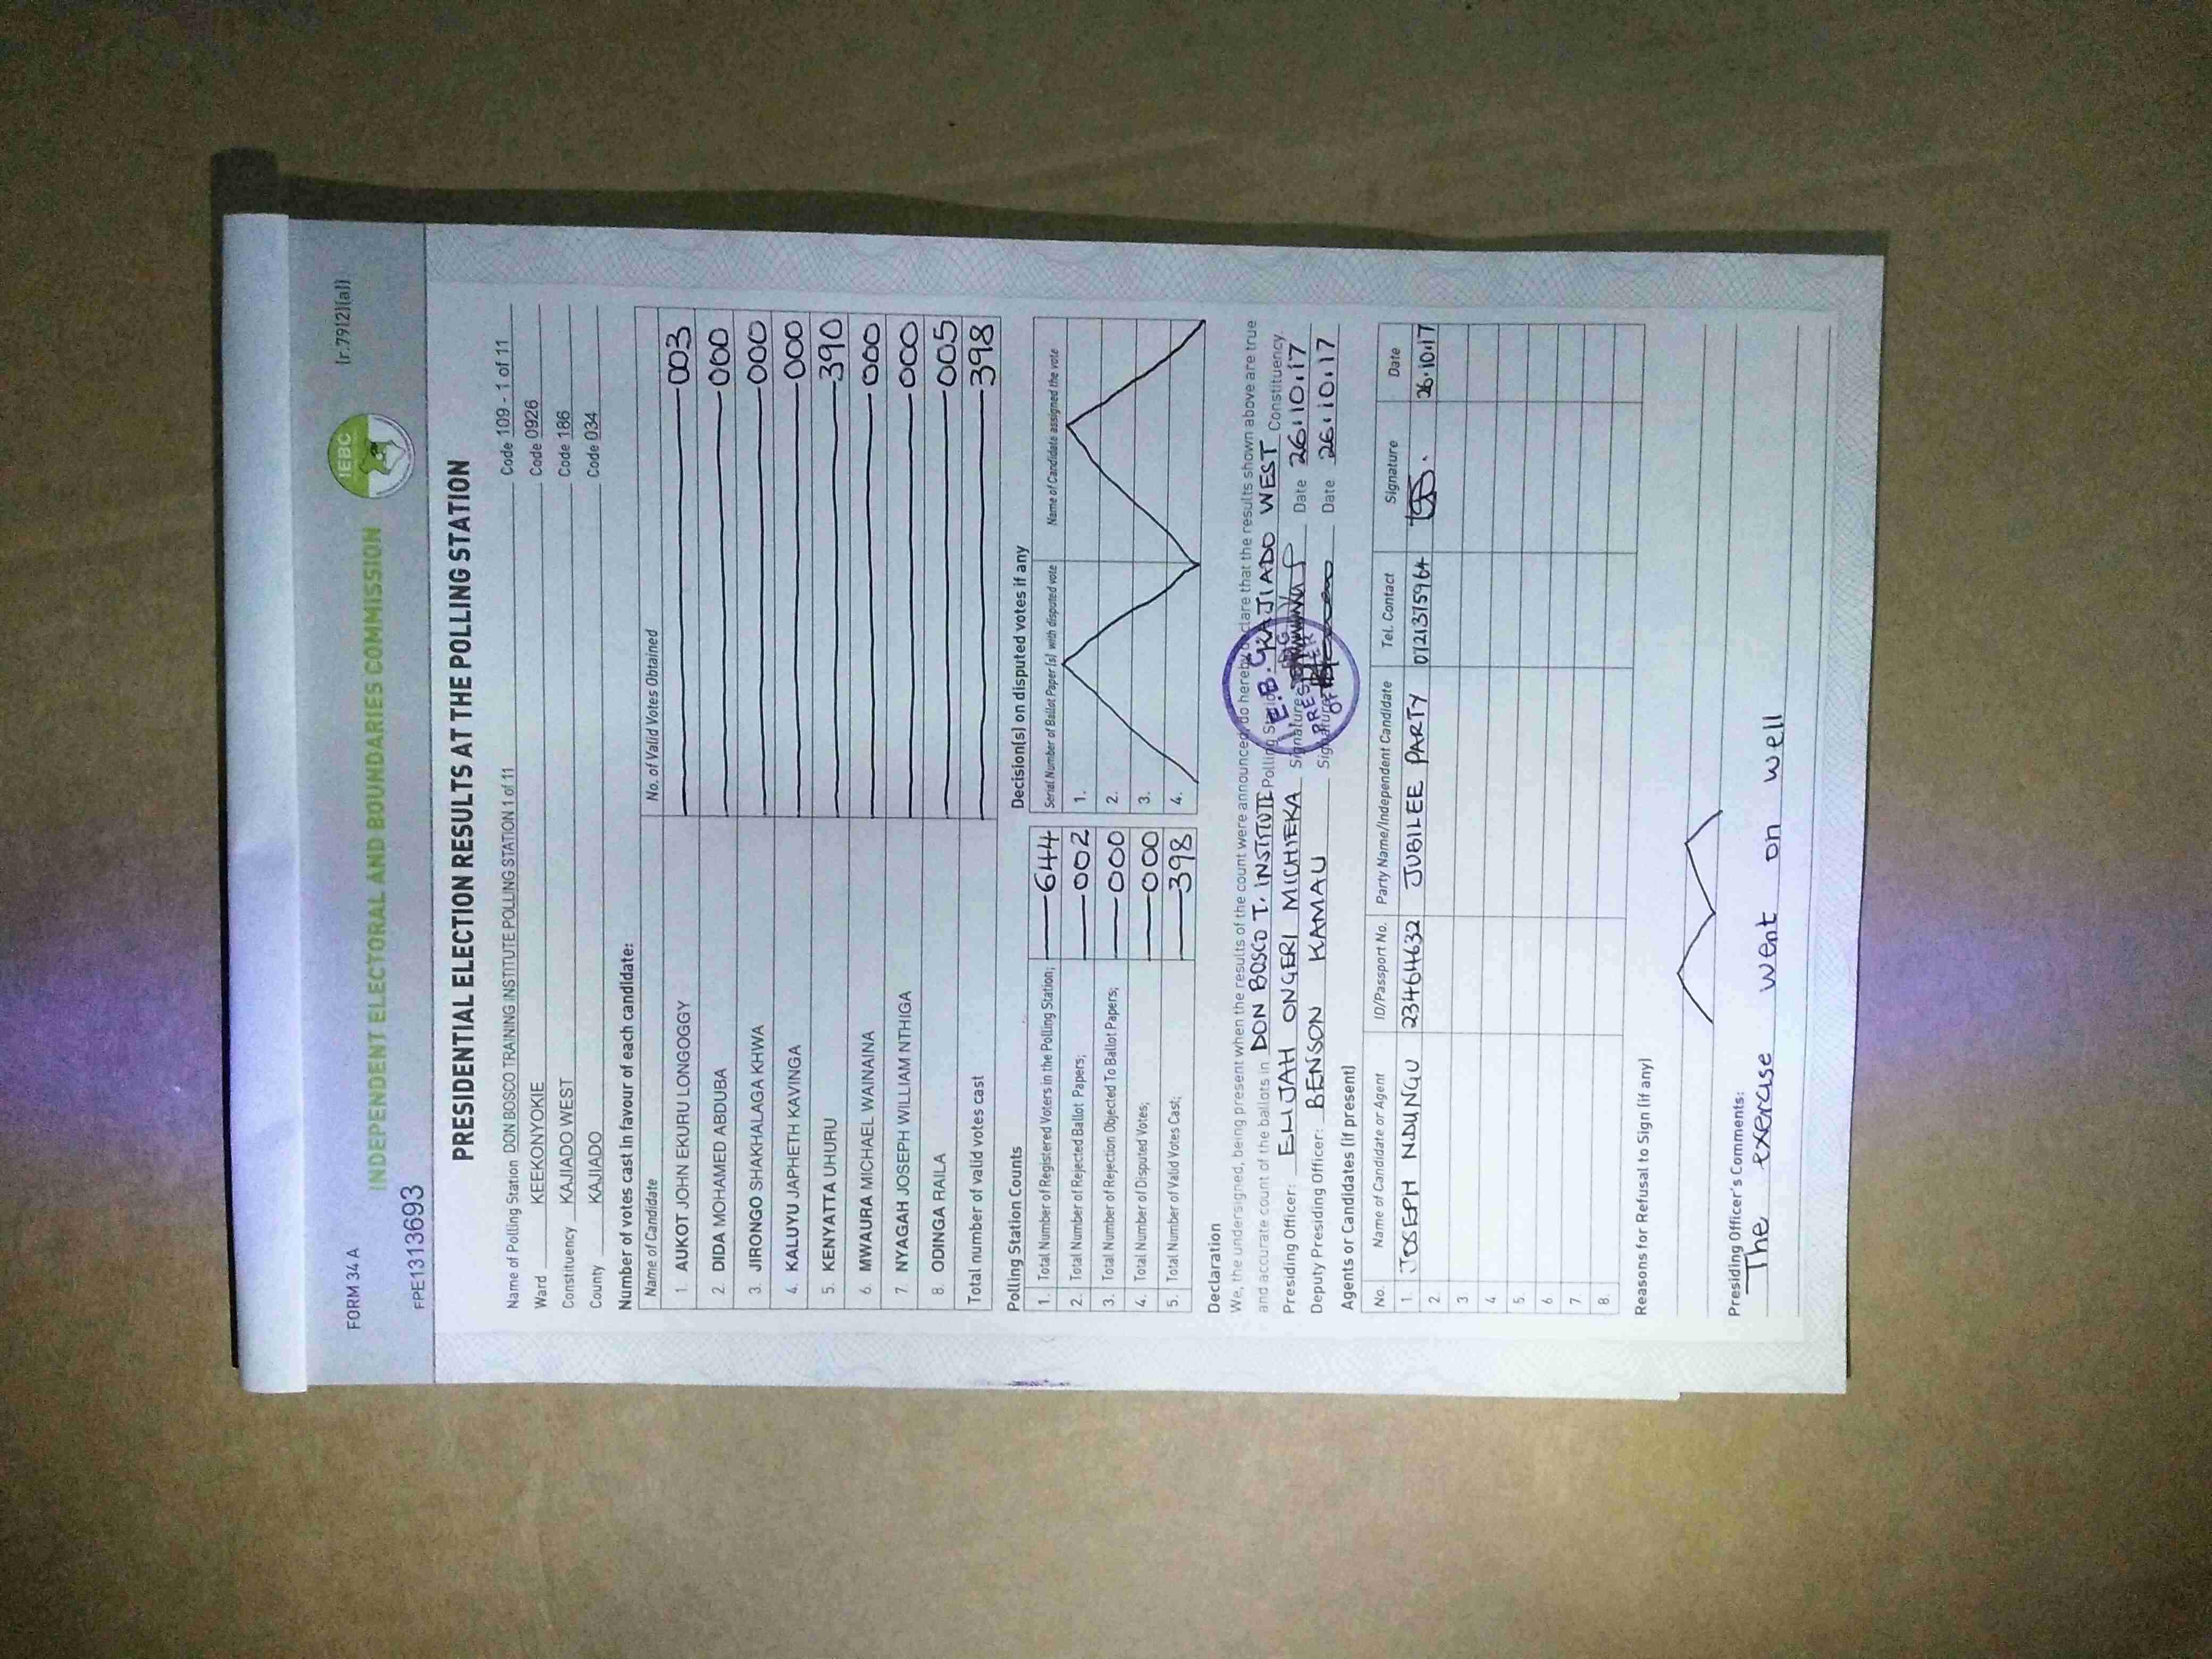 FORM 34 A
INDEPENDENT ELECTORAL AND BOUNDARIES COMMISSION
IEBC
[r.79(2)(a)]
FPE1313693
PRESIDENTIAL ELECTION RESULTS AT THE POLLING STATION
Name of Polling Station DON BOSCO TRAINING INSTITUTE POLLING STATION 1 of 11 Code 109 - 1 of 11
Ward KEEKONYOKIE Code 0926
Constituency KAJIADO WEST Code 186
County KAJIADO Code 034
Number of votes cast in favour of each candidate:
Name of Candidate No. of Valid Votes Obtained
1. AUKOT JOHN EKURU LONGOGGY 003
2. DIDA MOHAMED ABDUBA 000
3. JIRONGO SHAKHALAGA KHWA 000
4. KALUYU JAPHETH KAVINGA 000
5. KENYATTA UHURU 390
6. MWAURA MICHAEL WAINAINA 000
7. NYAGAH JOSEPH WILLIAM NTHIGA 000
8. ODINGA RAILA 005
Total number of valid votes cast 398
Polling Station Counts
1. Total Number of Registered Voters in the Polling Station; 644
2. Total Number of Rejected Ballot Papers; 002
3. Total Number of Rejection Objected To Ballot Papers; 000
4. Total Number of Disputed Votes; 000
5. Total Number of Valid Votes Cast; 398
Decision(s) on disputed votes if any
Serial Number of Ballot Paper(s) with disputed vote Name of Candidate assigned the vote
1.
2.
3.
4.
Declaration
We, the undersigned, being present when the results of the count were announced, do hereby declare that the results shown above are true
and accurate count of the ballots in DON BOSCO T. INSTITUTE Polling Station KAJIADO WEST Constituency.
Presiding Officer: ELIJAH ONGERI MICHIEKA Signature Date 26.10.17
Deputy Presiding Officer: BENSON KAMAU Signature Date 26.10.17
Agents or Candidates (if present)
No. Name of Candidate or Agent ID/Passport No. Party Name/Independent Candidate Tel. Contact Signature Date
1. JOSEPH NDUNGU 23464632 JUBILEE PARTY 0721375964 26.10.17
2.
3
4
5.
6
7.
8.
Reasons for Refusal to Sign (if any)
Presiding Officer's Comments:
The exercise went on well